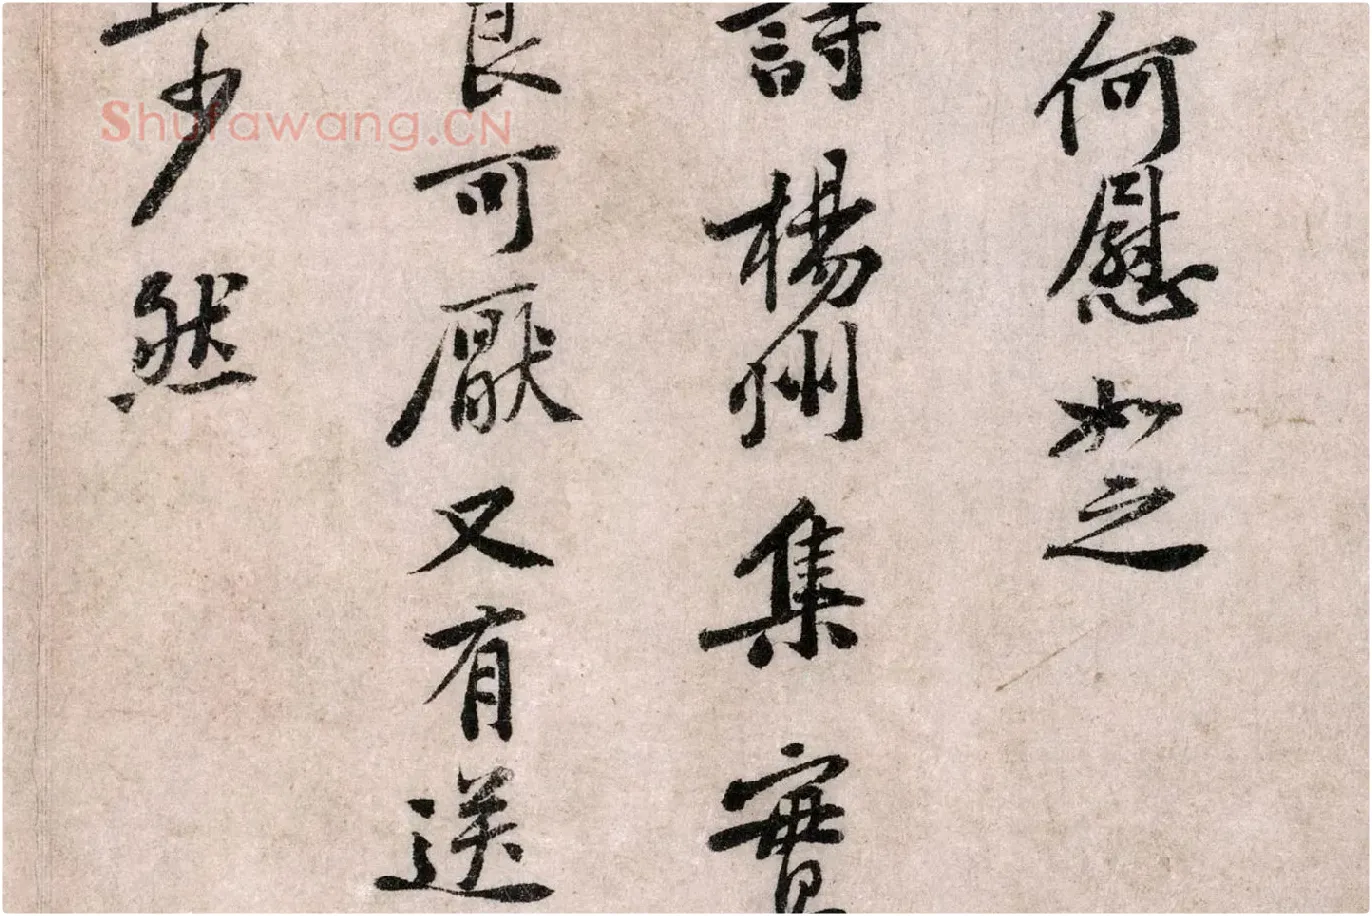 何慰如之
詩楊州集實
良可厭又有送
少然
Shufawang.CN